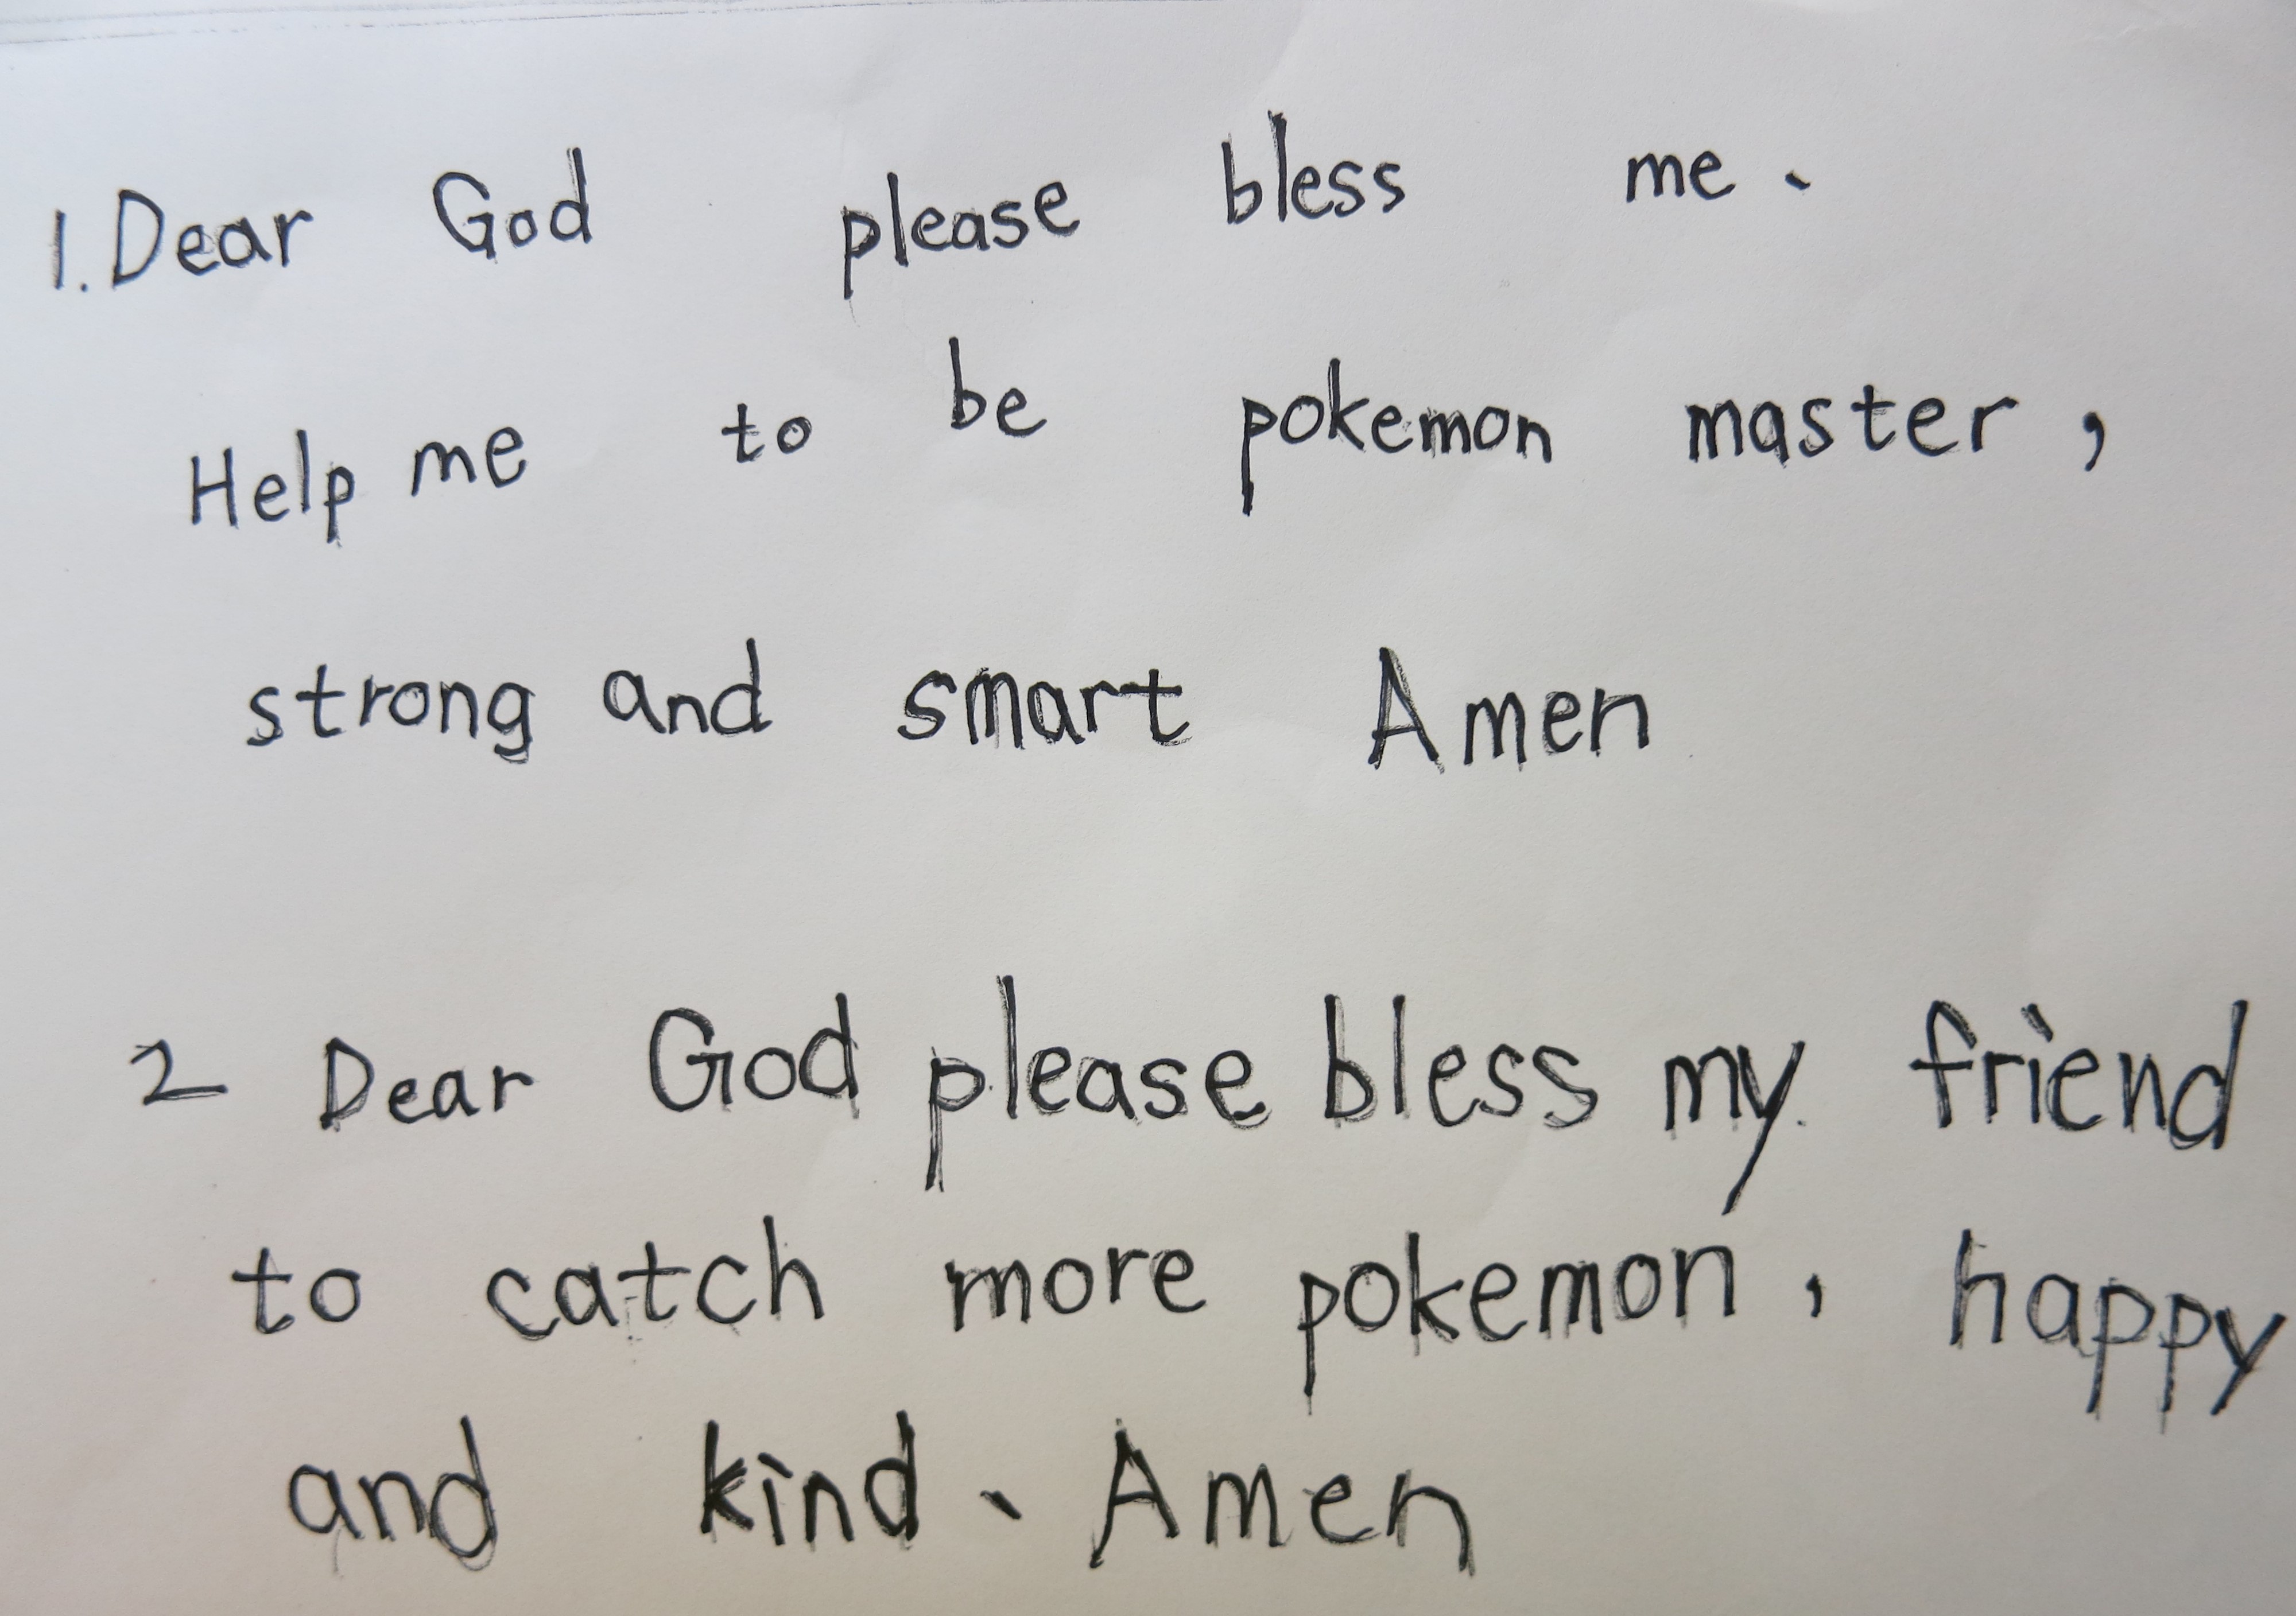 1. Dear God please bless me、
Help me to be pokemon master,
strong and smart Amen
2 Dear God please bless my friend
to catch more pokemon, happy
and kind、Amen